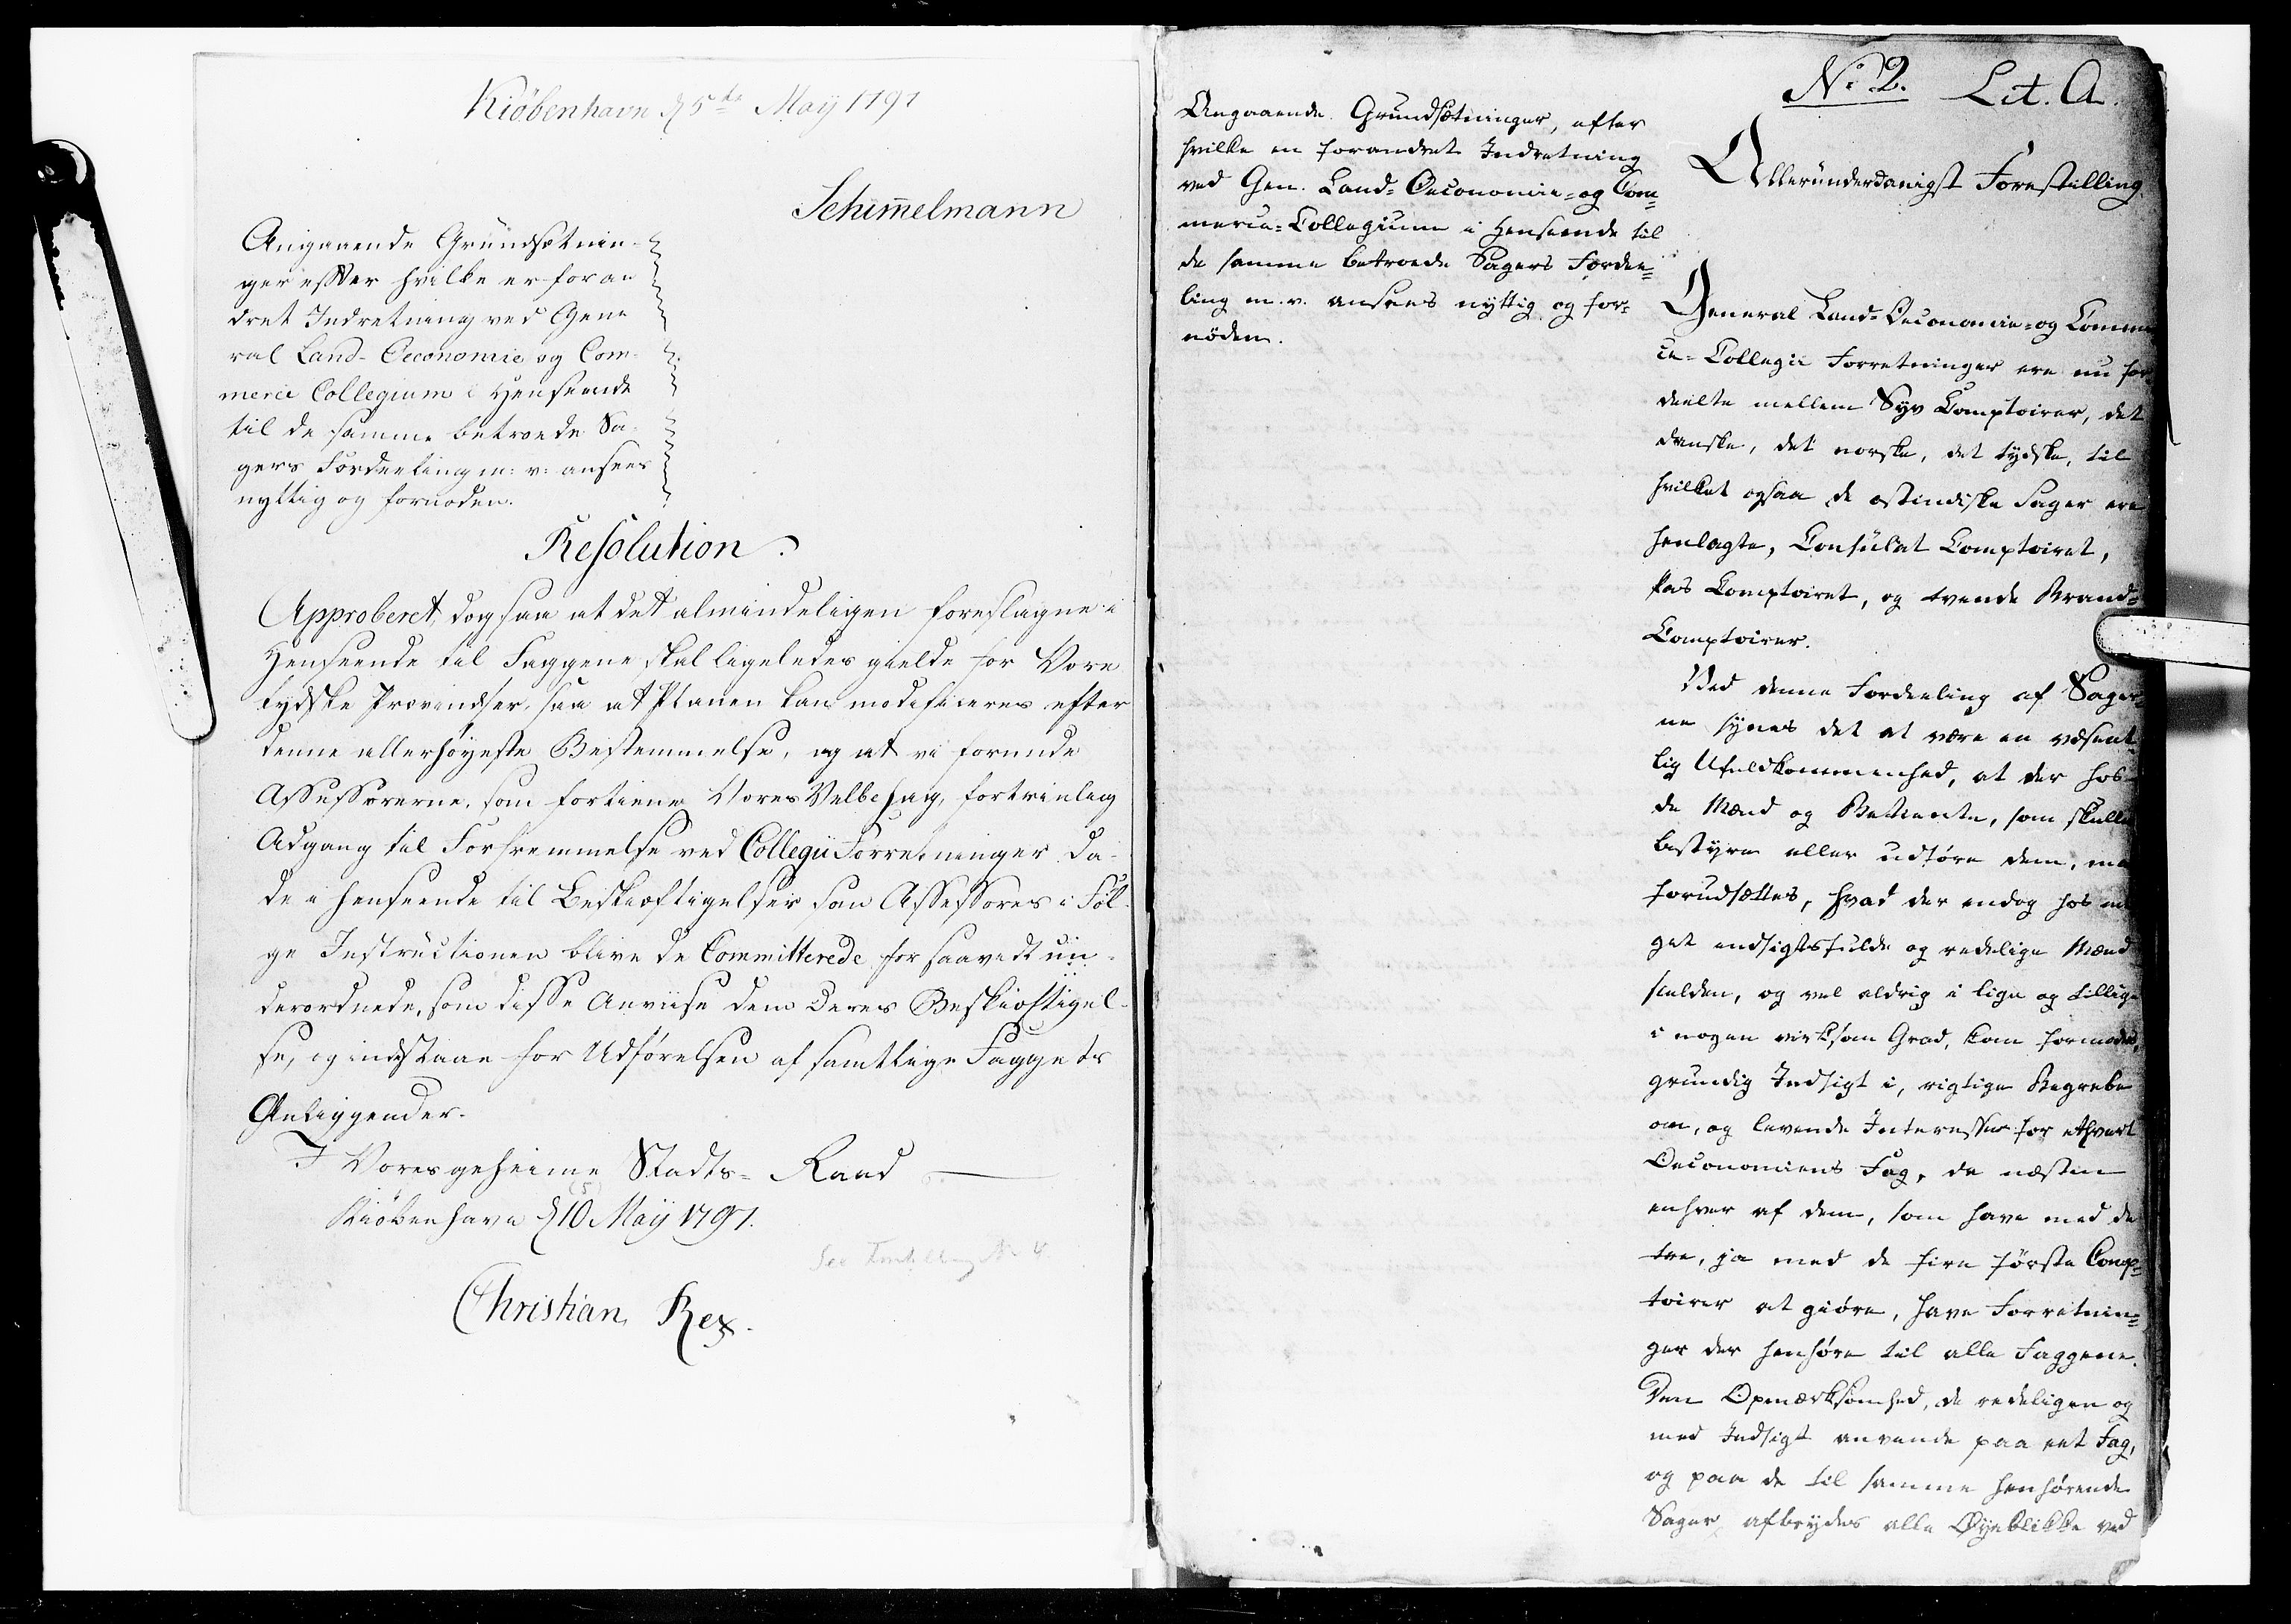 Kiöbenhavn d 5te Maÿ 1797
Schimmelmann
Angaaende Grundsætnin-
ger efter hvilke en foran
dret Indretning ved Gene
ral Land-Oeconomie og Com-
merce Collegium i Henseende
til de samme betroede Sa-
gers Fordeeling m: v: ansees
nyttig og fornøden.
Resolution.
Approberet, dog saa at det almindeligen foreslagne i
Henseende til Faggene skal ligeledes gielde for Vore
tydske Provindser, saa at Planen kan modificeres efter
denne allerhöyeste Bestemmelse, og at vi forunde
Assessorerne, som fortiene Vores Velbehag, fortrinlig
Adgang til Forfremmelse ved Collegii Forretninger. Da
de i henseende til Beskæftigelser som Assessores i Föl-
ge Instructionen blive de Committerede for saavidt un-
derordnede, som disse Anviise dem Deres Beskiæftigel-
se, og indestaae for Udförelsen af samtlige Faggets
Anliggender.
I Vores geheime Stadts-Raad
(5)
Kiöbenhavn d 10 Maÿ 1797.
See Forestilling No 4.
Christian Rex.
No 2. Lit. A.
Angaaende Grundsætninger, efter
hvilke en forandret Indretning
ved Gen. Land-Oeconomie-og Com-
merce-Collegium i Henseende til
de samme betroede Sagers Fordee-
ling m.v. ansees nyttig og for-
nöden.
Allerunderdanigst Forestilling
General Land-Oeconomie-og Commer
ce-Collegii Forretninger ere nu for
deelte mellem Syv Comptoirer, det
danske, det norske, det tydske, til
hvilket ogsaa de ostindiske Sager ere
henlagte, Consulat Comptoiret,
Pas Comptoiret, og tvende Brand-
Comptoirer.
Ved denne Fordeeling af Sager-
ne synes det at være en væsent-
lig Ufuldkommenhed, at der hos
de Mænd og Betiente, som skulle
bestyre eller udföre dem, maa
forudsættes, hvad der endog hos me
get indsigtsfulde og redelige Mænd
sielden, og vel aldrig i lige og tillige
i nogen virksom Grad, kan formodes,
grundig Indsigt i, rigtige Begrebe
om, og levende Interesse for ethvert
Oeconomiens Fag, da næsten
enhver af dem, som have med de
tre, ja med de fire förste Comp-
toirer at giöre, have Forretnin-
ger der henhöre til alle Faggene.
Den Opmærksomhed, de redeligen og
med Indsigt anvende paa eet Fag,
og paa de til samme henhörende
Sager, afbrydes alle Öyeblikke ved